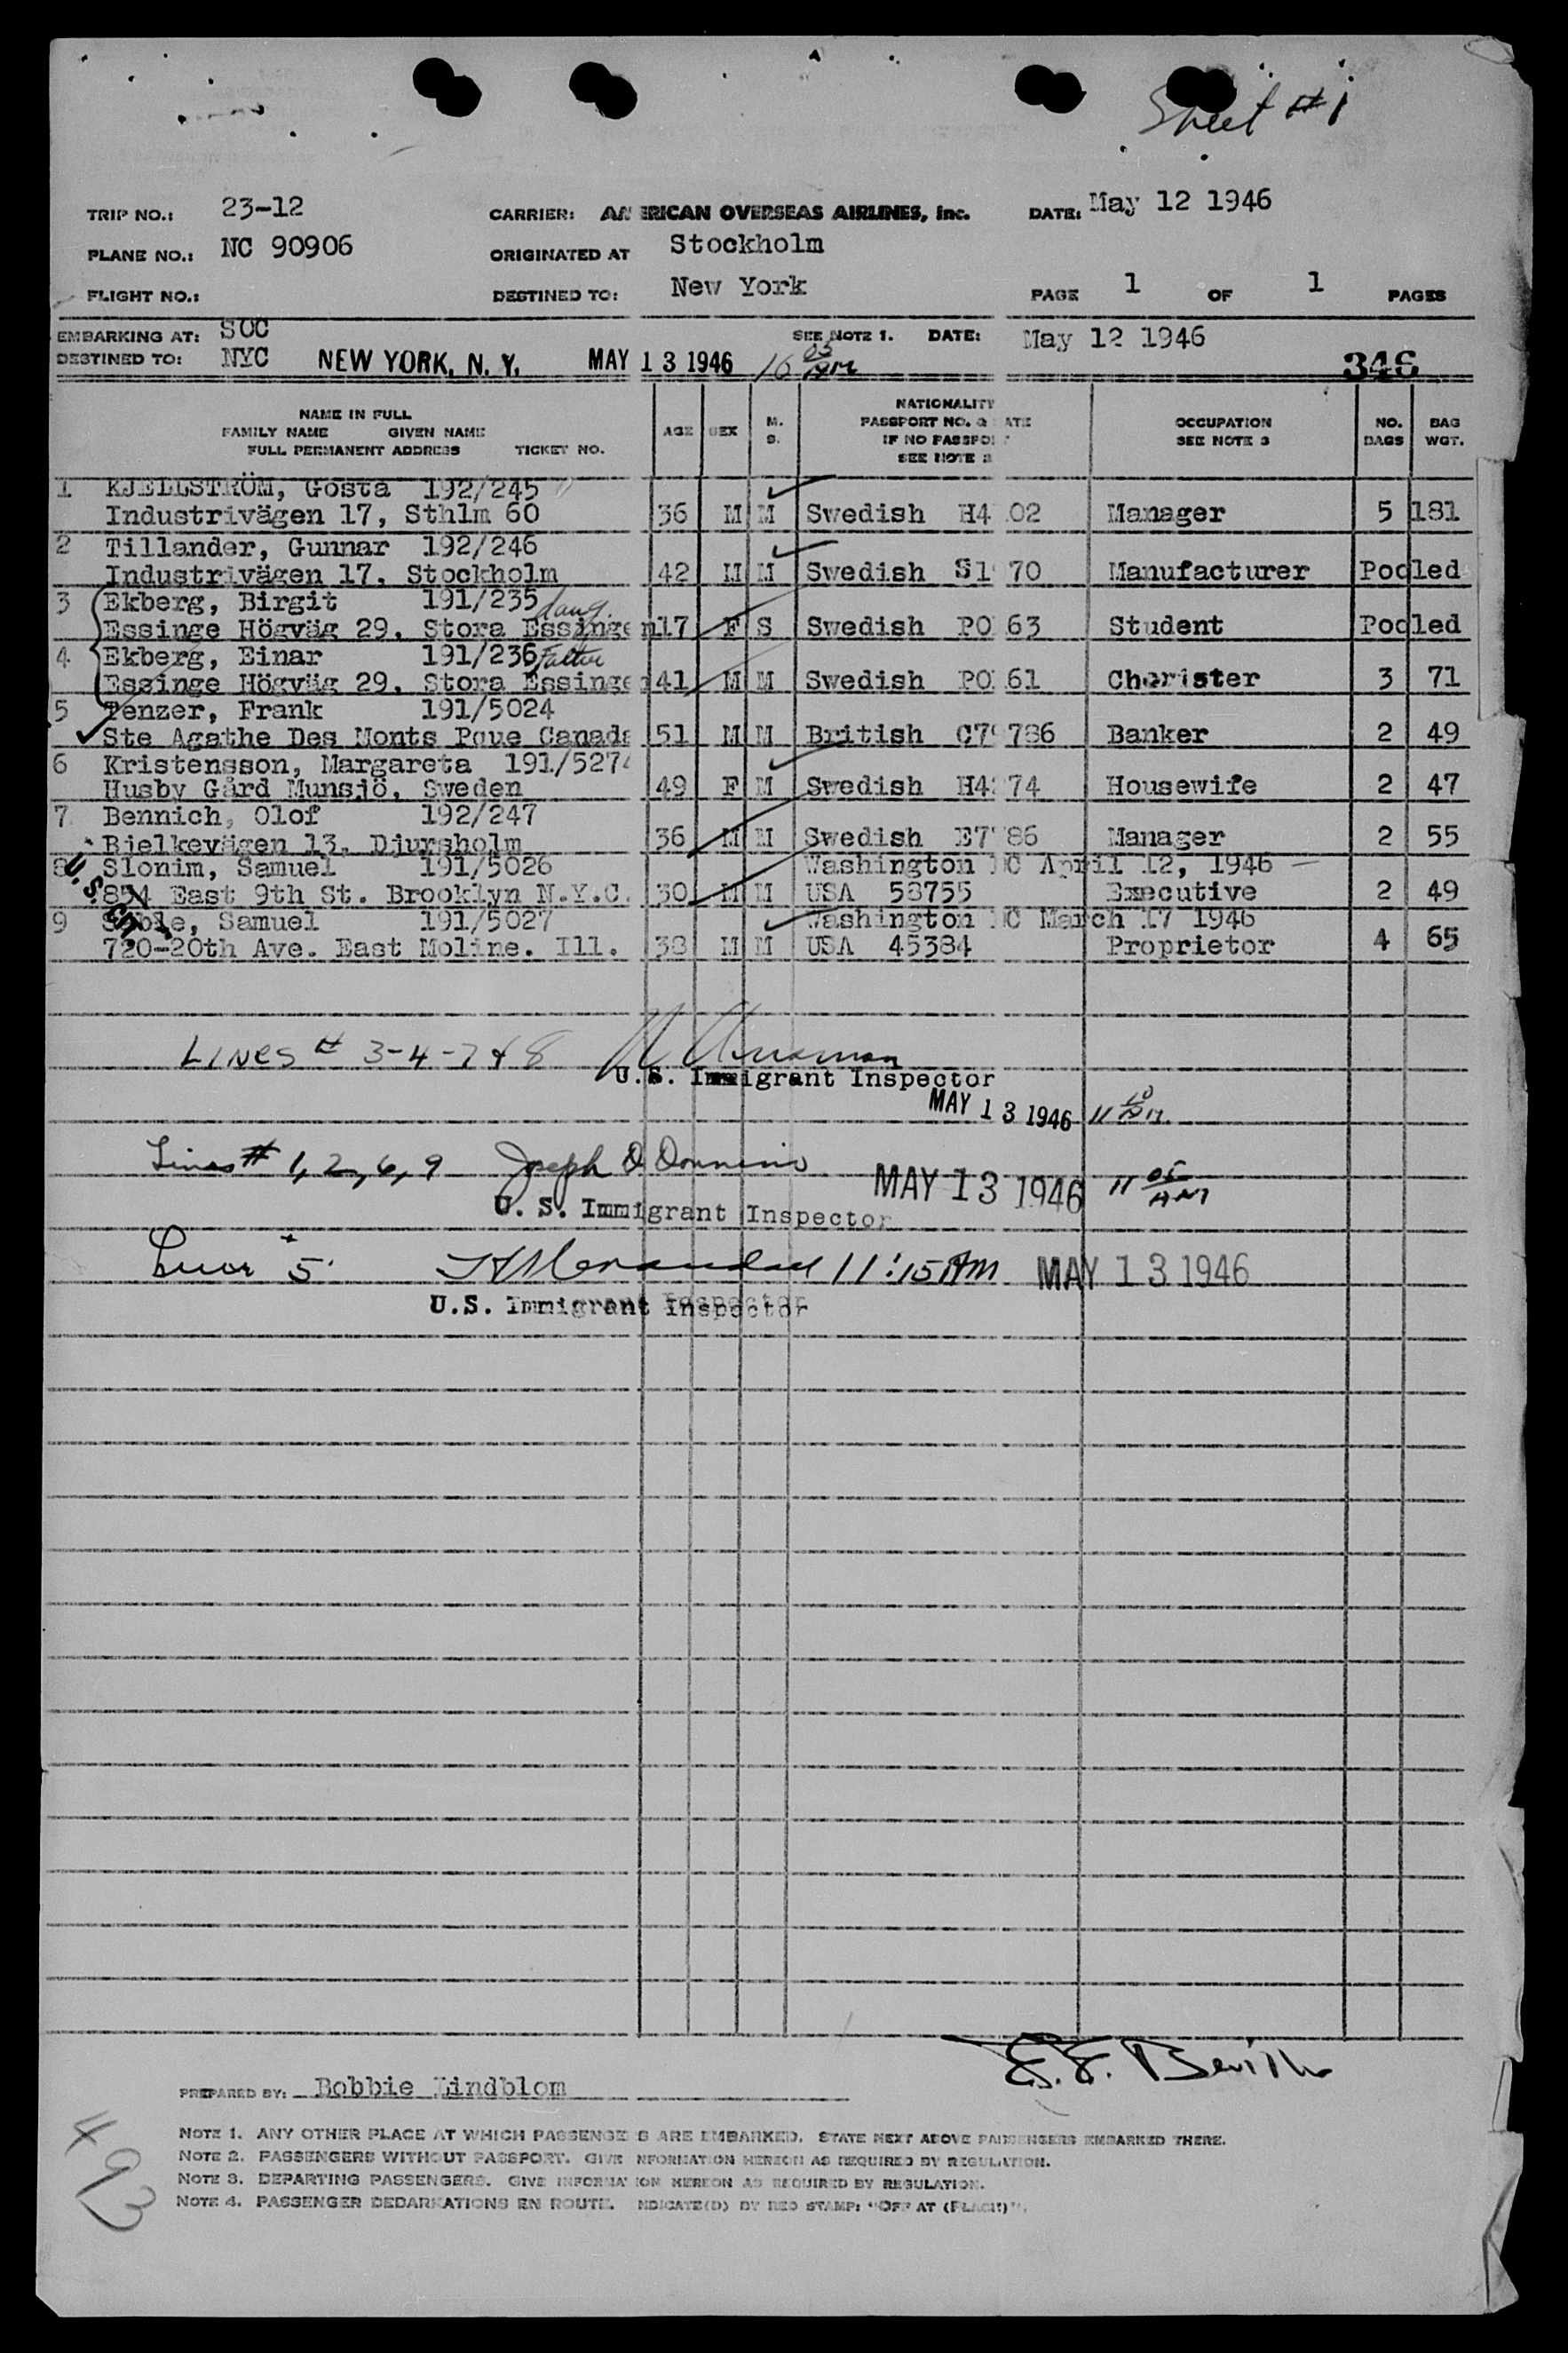 Sheet #1
TRIP NO.: 23-12 CARRIER: AMERICAN OVERSEAS AIRLINES, Inc. DATE: May 12 1946
PLANE NO.: NC 90906 ORIGINATED AT Stockholm
FLIGHT NO.: DESTINED TO: New York PAGE 1 OF 1 PAGES
EMBARKING AT: SOC SEE NOTE 1. DATE: May 12 1946
DESTINED TO: NYC NEW YORK, N. Y. MAY 13 1946 AM 346
NAME IN FULL
FAMILY NAME GIVEN NAME
FULL PERMANENT ADDRESS TICKET NO.
AGE SEX M. S.
NATIONALITY
PASSPORT NO. & DATE
IF NO PASSPORT
SEE NOTE 2
OCCUPATION
SEE NOTE 3
NO. BAGS
BAG WGT.
1 KJELLSTRÖM, Gösta 192/245
Industrivägen 17, Sthlm 60 36 M M Swedish H4 02 Manager 5 181
2 Tillander, Gunnar 192/246
Industrivägen 17, Stockholm 42 M M Swedish S1 70 Manufacturer Pooled
3 Ekberg, Birgit 191/235 daug.
Essinge Högväg 29, Stora Essingen 17 F S Swedish PO 63 Student Pooled
4 Ekberg, Einar 191/236 Father
Essinge Högväg 29, Stora Essinge 41 M M Swedish PO 61 Chorister 3 71
5 Tenzer, Frank 191/5024
Ste Agathe Des Monts Canada 51 M M British C7 786 Banker 2 49
6 Kristensson, Margareta 191/5274
Husby Gård Munsjö, Sweden 49 F M Swedish H4 74 Housewife 2 47
7 Bennich, Olof 192/247
Bielkevägen 13, Djursholm 36 M M Swedish E7 86 Manager 2 55
8 Slonim, Samuel 191/5026 Washington DC April 12, 1946
854 East 9th St. Brooklyn N.Y.C. 30 M M USA 58755 Executive 2 49
U.S. CIT.
9 Samuel 191/5027 Washington DC March 17 1946
720-20th Ave. East Moline. Ill. 38 M M USA 45384 Proprietor 4 65
LINES # 3-4-7 & 8
U.S. Immigrant Inspector
MAY 13 1946 11 10 AM
Lines # 1, 2, 6, 9 Joseph D. MAY 13 1946 11 05 AM
U. S. Immigrant Inspector
5 11:15 AM MAY 13 1946
U.S. Immigrant Inspector
PREPARED BY: Bobbie Lindblom
NOTE 1. ANY OTHER PLACE AT WHICH PASSENGERS ARE EMBARKED. STATE NEXT ABOVE PASSENGERS EMBARKED THERE.
NOTE 2. PASSENGERS WITHOUT PASSPORT. GIVE INFORMATION HEREON AS REQUIRED BY REGULATION.
NOTE 3. DEPARTING PASSENGERS. GIVE INFORMATION HEREON AS REQUIRED BY REGULATION.
NOTE 4. PASSENGER DEBARKATIONS EN ROUTE. INDICATE(D) BY RED STAMP: "OFF AT (PLACE)".